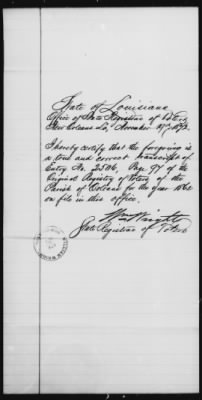 State of Louisiana
Office of State Registrar of Voters
New Orleans La, November 1872.
I hereby certify that the foregoing is
a true and correct transcript of
Entry No. Page 97 of the
Original Registry of Voters of the
Parish of Orleans for the year
on file in this office.
Wm Wright
State Registrar of Voters